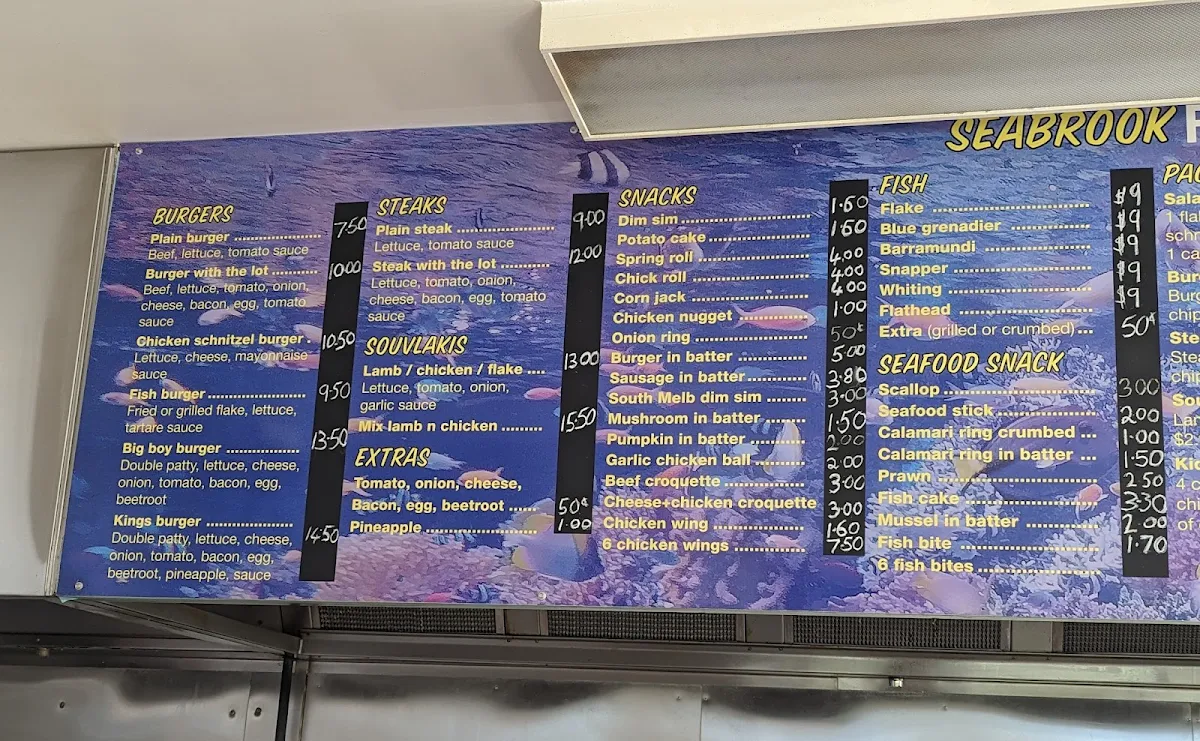 SEABROOK
BURGERS
Plain burger .................... 7.50
Beef, lettuce, tomato sauce
Burger with the lot .......... 10.00
Beef, lettuce, tomato, onion,
cheese, bacon, egg, tomato
sauce
Chicken schnitzel burger . 10.50
Lettuce, cheese, mayonnaise
sauce
Fish burger ...................... 9.50
Fried or grilled flake, lettuce,
tartare sauce
Big boy burger ................. 13.50
Double patty, lettuce, cheese,
onion, tomato, bacon, egg,
beetroot
Kings burger .................... 14.50
Double patty, lettuce, cheese,
onion, tomato, bacon, egg,
beetroot, pineapple, sauce
STEAKS
Plain steak ...................... 9.00
Lettuce, tomato sauce
Steak with the lot ........... 12.00
Lettuce, tomato, onion,
cheese, bacon, egg, tomato
sauce
SOUVLAKIS
Lamb / chicken / flake .... 13.00
Lettuce, tomato, onion,
garlic sauce
Mix lamb n chicken ......... 15.50
EXTRAS
Tomato, onion, cheese,
Bacon, egg, beetroot ...... 50¢
Pineapple ........................ 1.00
SNACKS
Dim sim .......................... 1.60
Potato cake ..................... 1.60
Spring roll ....................... 4.00
Chick roll ........................ 4.00
Corn jack ........................ 4.00
Chicken nugget ................ 1.00
Onion ring ....................... 50¢
Burger in batter ............... 5.00
Sausage in batter ............. 3.80
South Melb dim sim .......... 3.00
Mushroom in batter .......... 1.50
Pumpkin in batter ............. 2.00
Garlic chicken ball ........... 2.00
Beef croquette ................. 3.00
Cheese+chicken croquette 3.00
Chicken wing ................... 1.60
6 chicken wings ............... 7.50
FISH
Flake .............................. $9
Blue grenadier ................. $9
Barramundi ...................... $9
Snapper .......................... $9
Whiting ........................... $9
Flathead .........................
Extra (grilled or crumbed)... 50¢
SEAFOOD SNACK
Scallop ........................... 3.00
Seafood stick .................. 2.00
Calamari ring crumbed ... 1.00
Calamari ring in batter ... 1.50
Prawn ............................. 2.50
Fish cake ........................ 3.30
Mussel in batter ............... 2.00
Fish bite ......................... 1.70
6 fish bites ......................